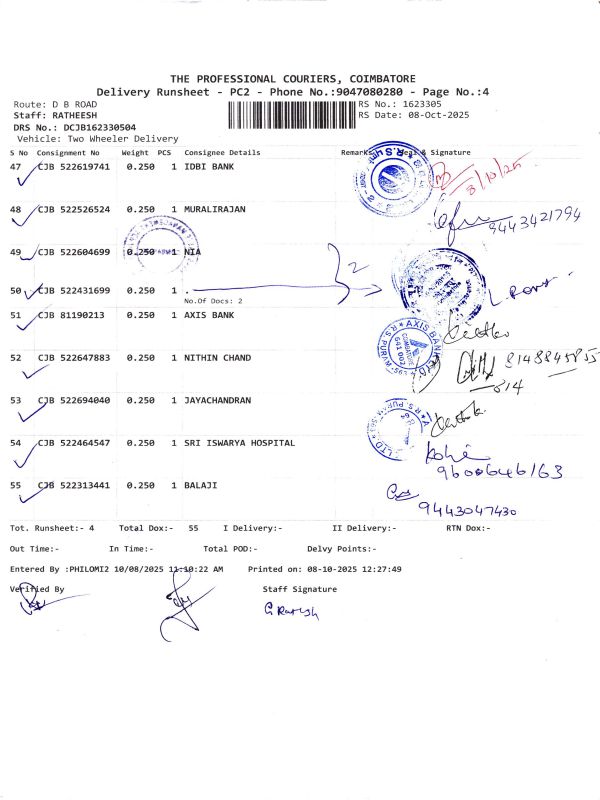 THE PROFESSIONAL COURIERS, COIMBATORE
Delivery Runsheet - PC2 - Phone No.:9047080280 - Page No.:4
Route: D B ROAD
RS No.: 1623305
Staff: RATHEESH
RS Date: 08-Oct-2025
DRS No.: DCJB162330504
Vehicle: Two Wheeler Delivery
S No Consignment No Weight PCS Consignee Details Remarks Seal & Signature
47 CJB 522619741 0.250 1 IDBI BANK
8/10/25
48 CJB 522526524 0.250 1 MURALIRAJAN
9443421794
49 CJB 522604699 0.250 1 NIA
2
50 CJB 522431699 0.250 1 .
No.Of Docs: 2
51 CJB 81190213 0.250 1 AXIS BANK
AXIS BANK
641 002
52 CJB 522647883 0.250 1 NITHIN CHAND
8148845855
814
53 CJB 522694040 0.250 1 JAYACHANDRAN
54 CJB 522464547 0.250 1 SRI ISWARYA HOSPITAL
9600646163
55 CJB 522313441 0.250 1 BALAJI
9443047430
Tot. Runsheet:- 4 Total Dox:- 55 I Delivery:- II Delivery:- RTN Dox:-
Out Time:- In Time:- Total POD:- Delvy Points:-
Entered By :PHILOMI2 10/08/2025 11:10:22 AM Printed on: 08-10-2025 12:27:49
Verified By Staff Signature